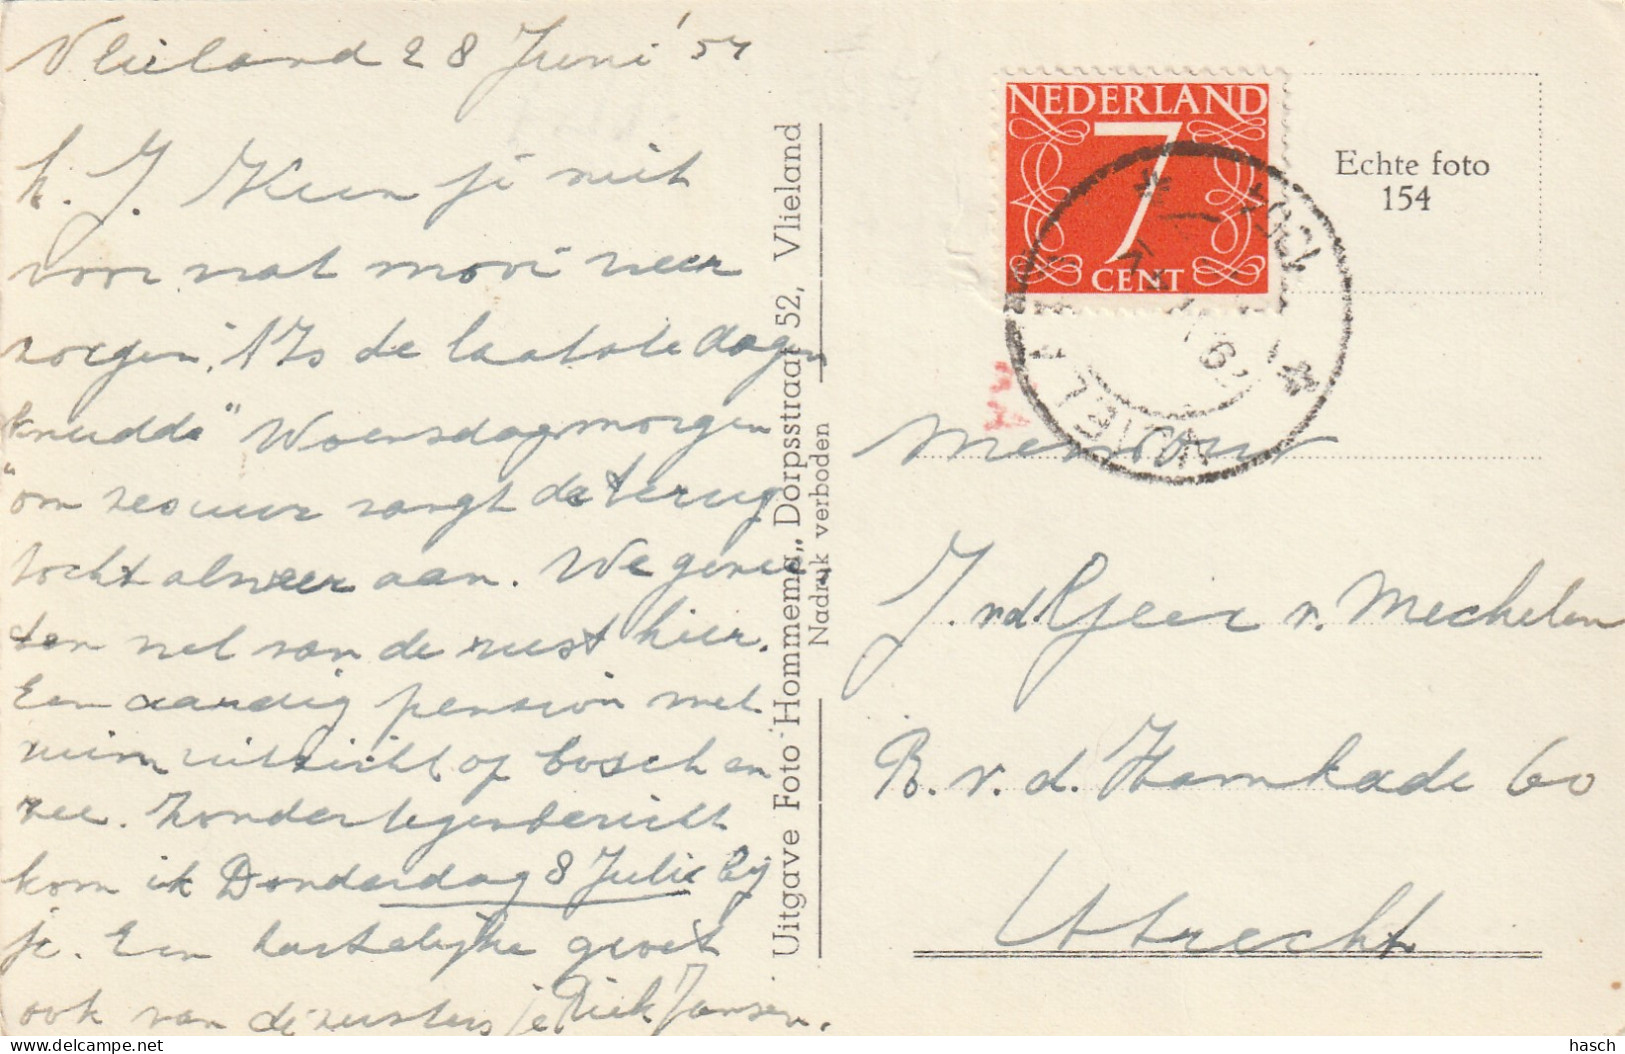 Vlieland 28 Juni '54
L. J. Kun je niet
voor wat mooi weer
zorgen, 't Is de laatste dagen
"knudde" Woensdagmorgen
om zes uur vangt de terug
tocht alweer aan. We genie
ten wel van de rust hier.
Een aardig pension met
ruim uitzicht op bosch en
zee. Zonder tegenbericht
kom ik Donderdag 8 Julie bij
je. Een hartelijke groet
ook van de zusters je Dick Jansen.
Uitgave Foto Hommema, Dorpsstraat 52, Vlieland
Nadruk verboden
NEDERLAND
7
CENT
Echte foto
154
VLIELAND
Mevrouw
J. v.d. Geer v. Mechelen
B. v. d. Hamkade 60
Utrecht
hasch
delcampe.net